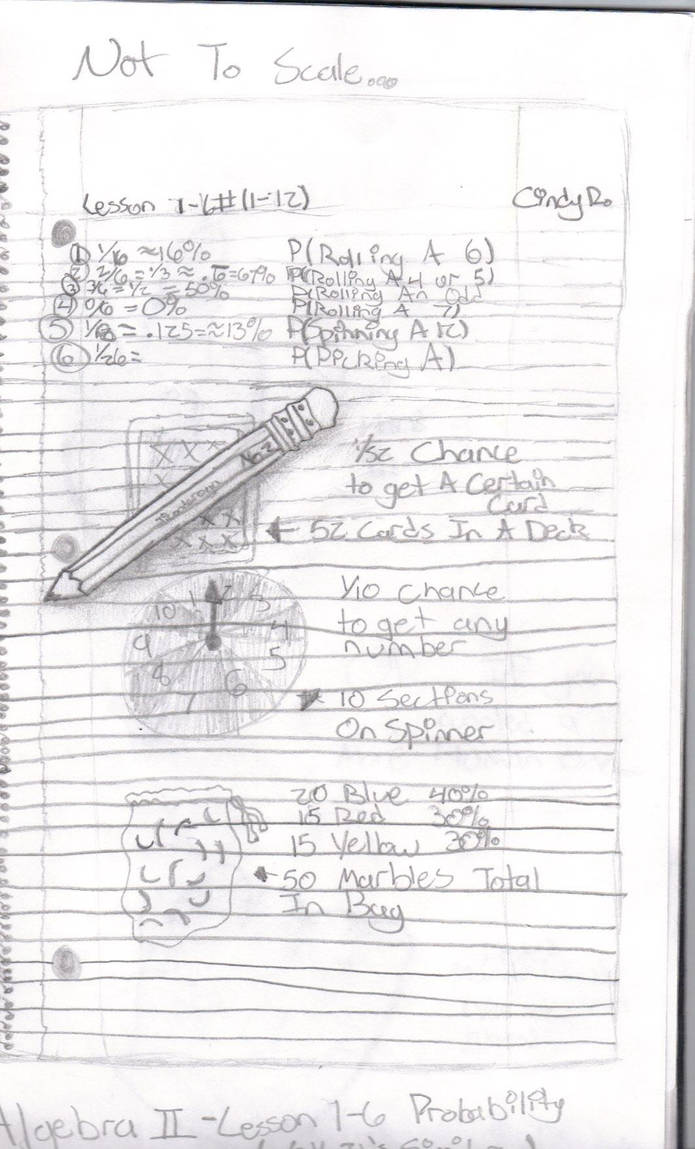 Not To Scale...
Lesson 1-6#(1-12)
Cindy Ro
① 1/6 ≈16% P(Rolling A 6)
2) 2/6=1/3≈.6=67% P(Rolling A 4 or 5)
③ 3/6=1/2=50% P(Rolling An odd
④ 0/6=0% P(Rolling A 7)
⑤ 1/8=.125=≈13% P(Spinning A
⑥ 1/26= P(Picking A)
XXX
No. 2
Ticonderoga
XX
XXX
1/52 Chance
to get A Certain
Card
52 Cards In A Deck
1/10 chance
to get any
number
10 Sections
On Spinner
1 2 3 4 5 6 7 8 9 10
20 Blue 40%
15 Red 30%
15 Yellow 30%
50 Marbles Total
In Bag
Algebra II - Lesson 1-6 Probability